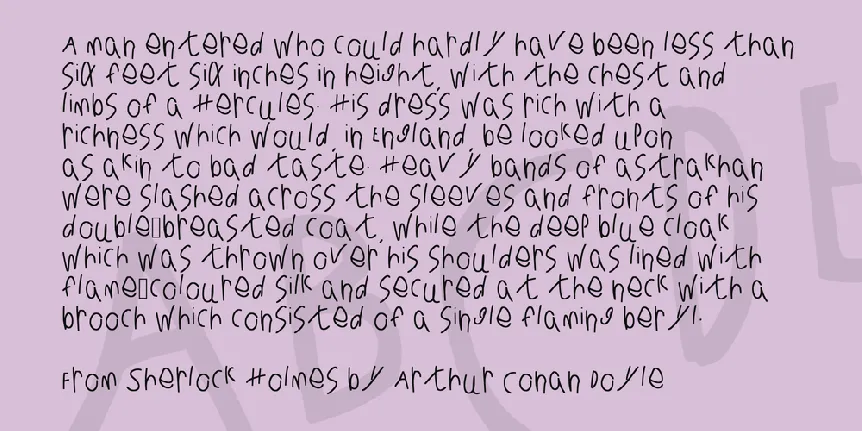 A man entered who could hardly have been less than
six feet six inches in height, with the chest and
limbs of a Hercules. His dress was rich with a
richness which would, in England, be looked upon
as akin to bad taste. Heavy bands of astrakhan
were slashed across the sleeves and fronts of his
double▯breasted coat, while the deep blue cloak
which was thrown over his shoulders was lined with
flame▯coloured silk and secured at the neck with a
brooch which consisted of a single flaming beryl.
From Sherlock Holmes by Arthur Conan Doyle
ABCDE